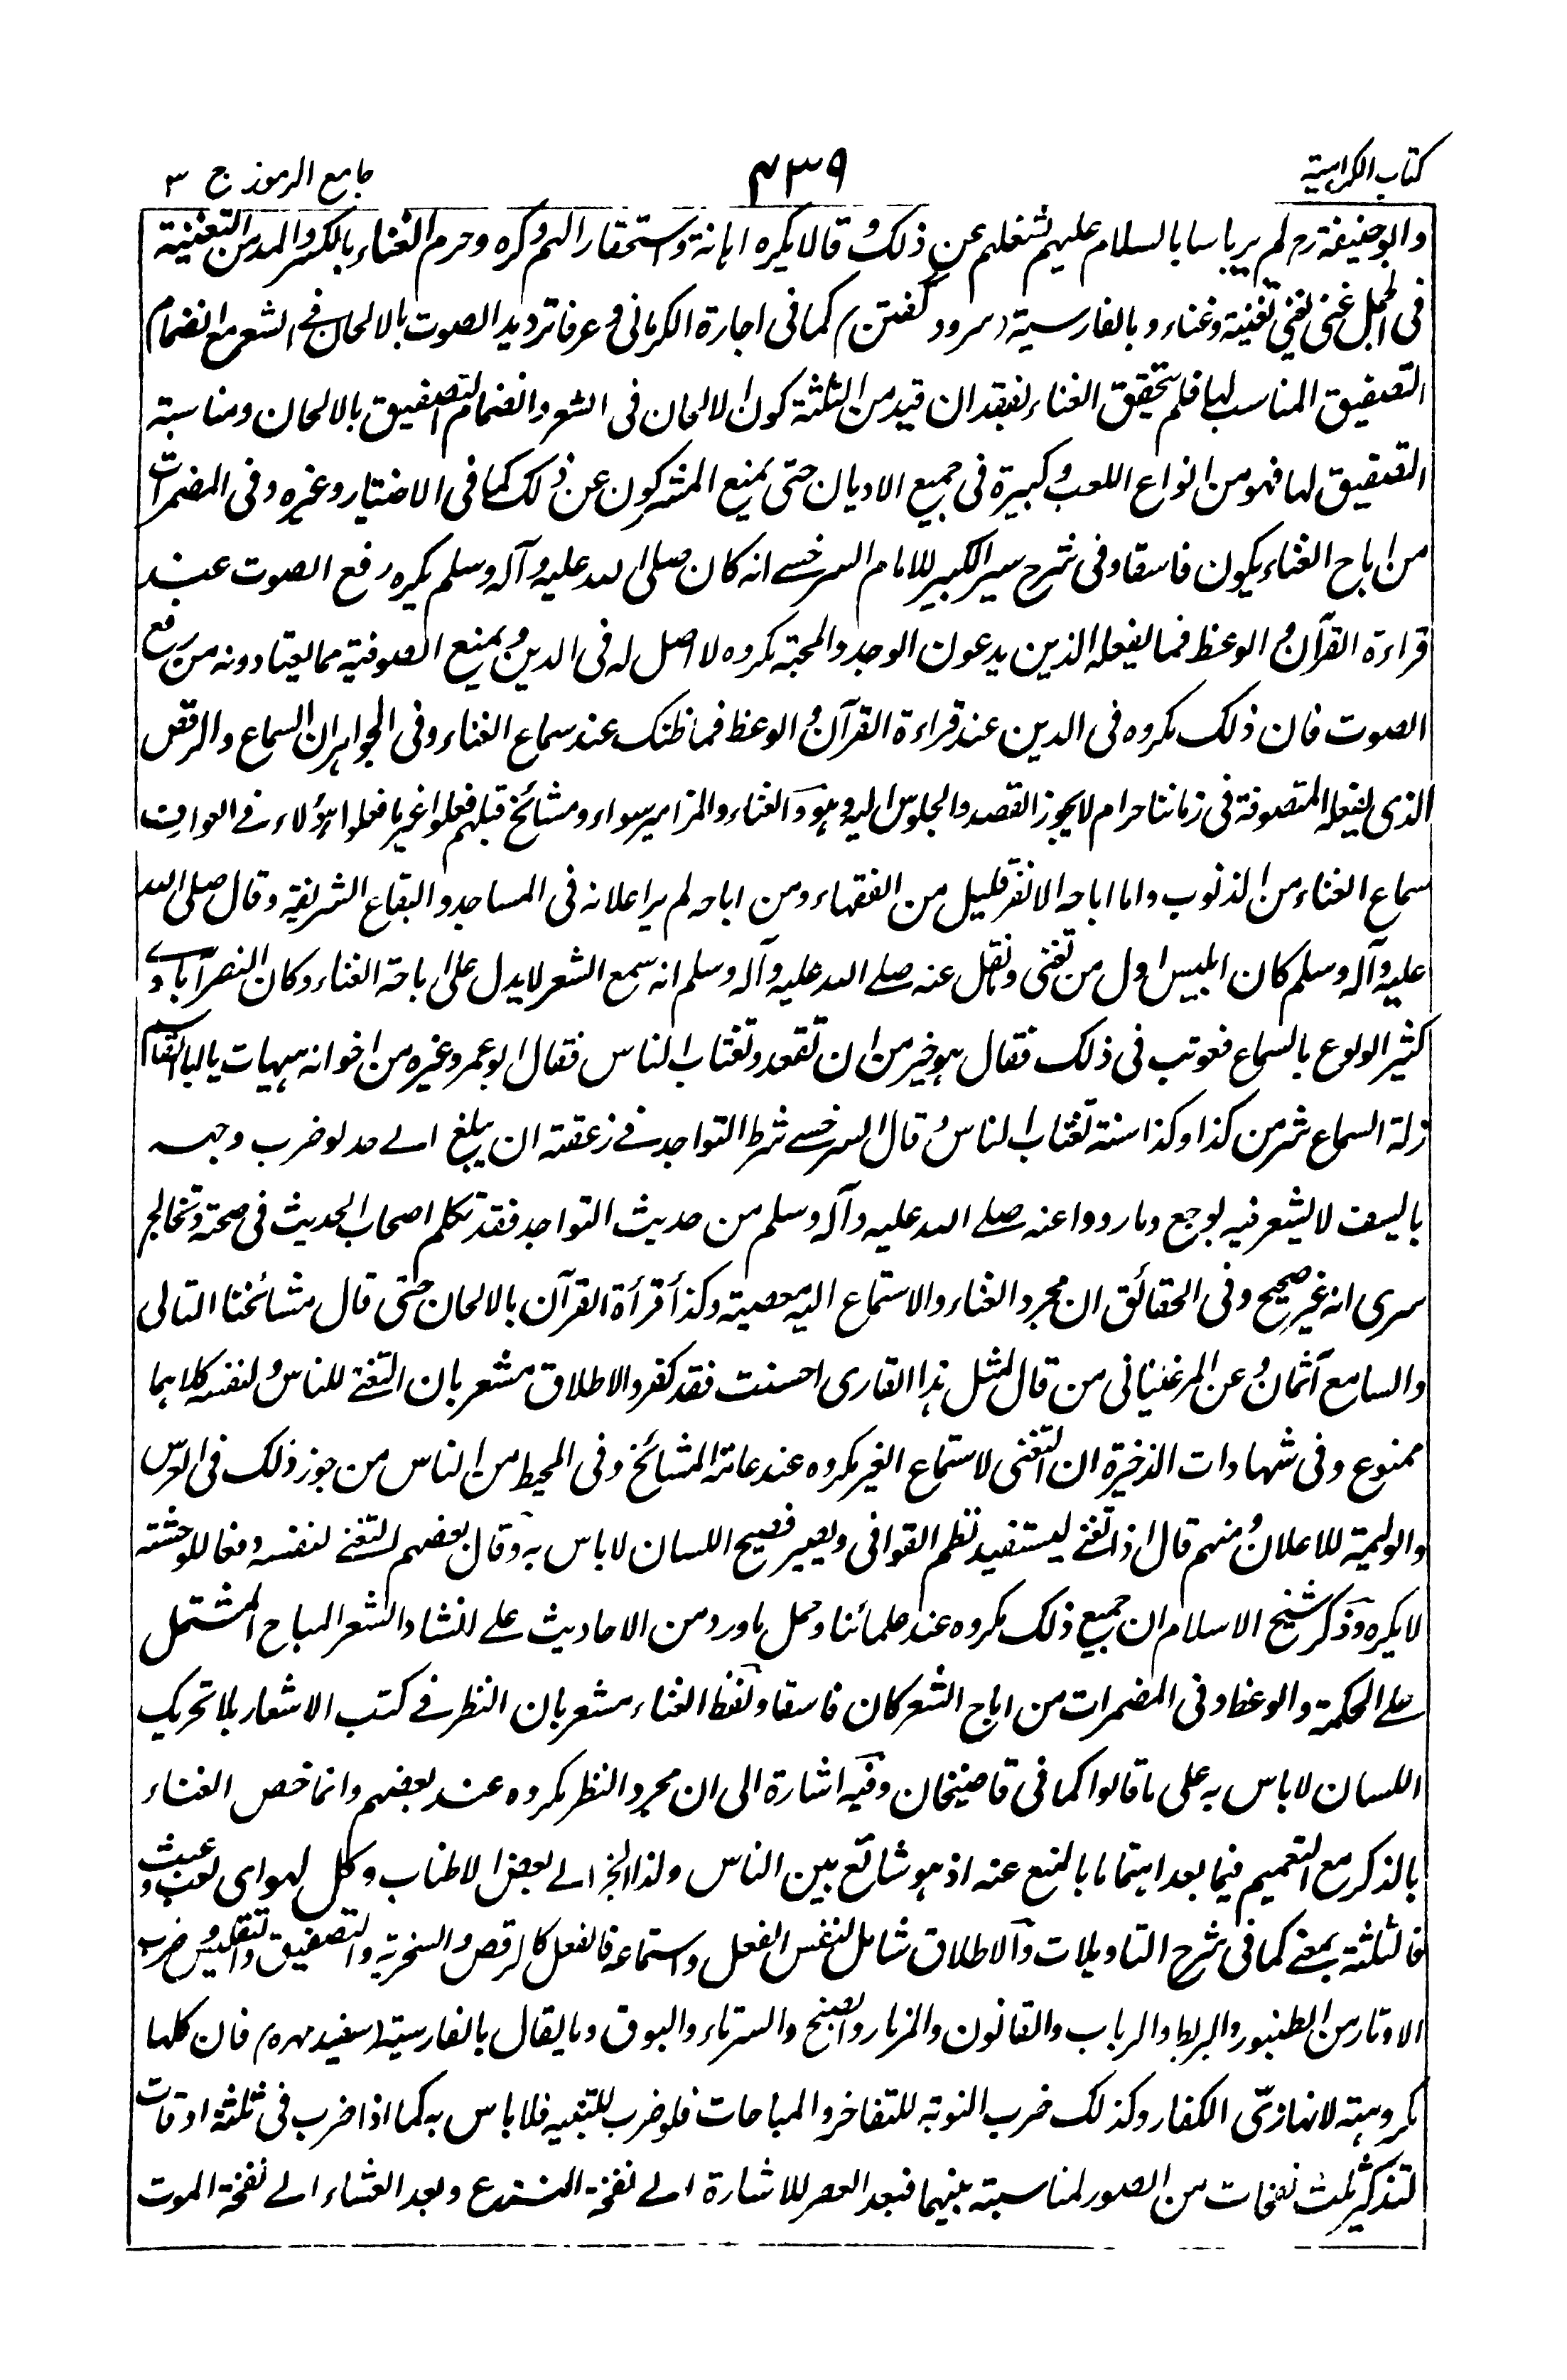 كتاب الكراهية
٤٣٩
جامع الرموز ج ٣
وابو حنيفة رح لم ير باسا بالسلام عليهم لشغلهم عن ذلك وقالا يكره اهانة واستحقارا لهم وكره وحرم الغناء بالكسر والمد من التغنية
في المجمل غنى يغني تغنية وغناء وبالفارسية (سرود گفتن) كما في اجارة الكرماني وعرفا ترديد الصوت بالالحان في الشعر مع انضمام
التصفيق المناسب لها فلم يتحقق الغناء بفقدان قيد من الثلثة كون الالحان في الشعر وانضمام التصفيق بالالحان ومناسبة
التصفيق لها فهو من انواع اللعب وكبيرة في جميع الاديان حتى يمنع المشركون عن ذلك كما في الاختيار وغيره وفي المضمرات
من اباح الغناء يكون فاسقا وفي شرح سير الكبير للامام السرخسي انه كان صلى الله عليه وآله وسلم يكره رفع الصوت عند
قراءة القرآن والوعظ فما يفعله الذين يدعون الوجد والمحبة مكروه لا اصل له في الدين ويمنع الصوفية مما يعتادونه من رفع
الصوت فان ذلك مكروه في الدين عند قراءة القرآن والوعظ فما ظنك عند سماع الغناء وفي الجواهر ان السماع والرقص
الذي يفعله المتصوفة في زماننا حرام لا يجوز القصد والجلوس اليه وهو والغناء والمزامير سواء ومشائخ قبلهم فعلوا غير ما فعلوا هؤلاء في العوارف
سماع الغناء من الذنوب واما اباحه الا نفر قليل من الفقهاء ومن اباحه لم ير اعلانه في المساجد والبقاع الشريفة وقال صلى الله
عليه وآله وسلم كان ابليس اول من تغنى ونقل عنه صلى الله عليه وآله وسلم انه سمع الشعر لا يدل على اباحة الغناء وكان النصرآبادي
كثير الولوع بالسماع فعوتب في ذلك فقال هو خير من ان تقعد وتغتاب الناس فقال ابو عمرو غيره من اخوانه هيهات يا ابا القاسم
زلة السماع شر من كذا وكذا سنة تغتاب الناس وقال السرخسي شرط التواجد في زعقته ان يبلغ الى حد لو ضرب وجهه
بالسيف لا يشعر فيه بوجع وما رووا عنه صلى الله عليه وآله وسلم من حديث التواجد فقد تكلم اصحاب الحديث في صحته وتخالج
سري انه غير صحيح وفي الحقائق ان مجرد الغناء والاستماع اليه معصية وكذا قرأة القرآن بالالحان حتى قال مشائخنا التالي
والسامع آثمان وعن المرغيناني من قال لمثل هذا القاري احسنت فقد كفر والاطلاق مشعر بان التغني للناس ولنفسه كلاهما
ممنوع وفي شهادات الذخيرة ان التغني لاستماع الغير مكروه عند عامة المشائخ وفي المحيط من الناس من جوز ذلك في العرس
والوليمة للاعلان ومنهم قال اذا تغنى ليستفيد نظم القوافي ويصير فصيح اللسان لا باس به وقال بعضهم التغني لنفسه دفعا للوحشة
لا يكره وذكر شيخ الاسلام ان جميع ذلك مكروه عند علمائنا وحمل ما ورد من الاحاديث على انشاد الشعر المباح المشتمل
على الحكمة والوعظ وفي المضمرات من اباح الشعر كان فاسقا ولفظ الغناء مشعر بان النظر في كتب الاشعار بلا تحريك
اللسان لا باس به على ما قالوا كما في قاضيخان وفيه اشارة الى ان مجرد النظر مكروه عند بعضهم وانما خص الغناء
بالذكر مع التعميم فيما بعد اهتماما بالمنع عنه اذ هو شائع بين الناس ولذا انجر الى بعض الاطناب وكل لهو اي لعب وعبث
فالثلثة بمعنى كما في شرح التاويلات والاطلاق شامل لنفس الفعل واستماعه فالفعل كالرقص والسخرية والتصفيق والتقليس وضرب
الاوتار من الطنبور والبربط والرباب والقانون والمزمار والصنج والسرناء والبوق وما يقال بالفارسية (سفيد مهره) فان كلها
مكروهة لانها زي الكفار وكذلك ضرب النوبة للتفاخر والمباهات فلو ضرب للتنبيه فلا باس به كما اذا ضرب في ثلثة اوقات
لتذكير ثلث نفخات من الصور لمناسبة بينهما فبعد العصر للاشارة الى نفخة الفزع وبعد العشاء الى نفخة الموت